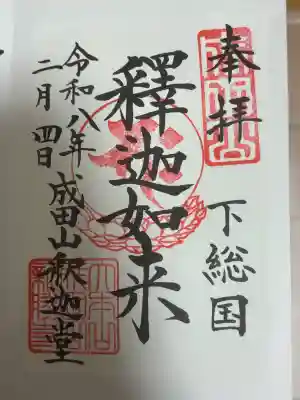 奉拝
下総国
釋迦如来
令和八年
二月四日
成田山釈迦堂